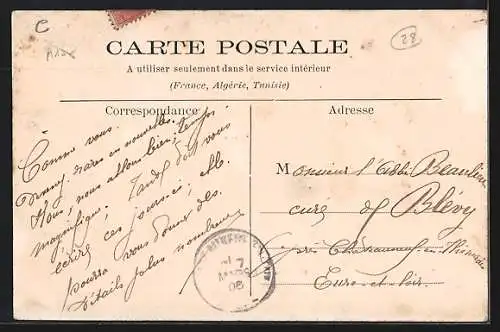 C
28
CARTE POSTALE
A utiliser seulement dans le service intérieur
(France, Algérie, Tunisie)
Correspondance
Comme vous
rare en nouvelles.
nous allons bien; temps
magnifique. doit vous
écrire ces jours-ci; elle
pourra vous donner des
détails plus nombreux
Adresse
Monsieur l'abbé Beaulieu
curé de Blévy
près Châteauneuf-en-Thimerais
Eure-et-Loir.
7
MARS
06